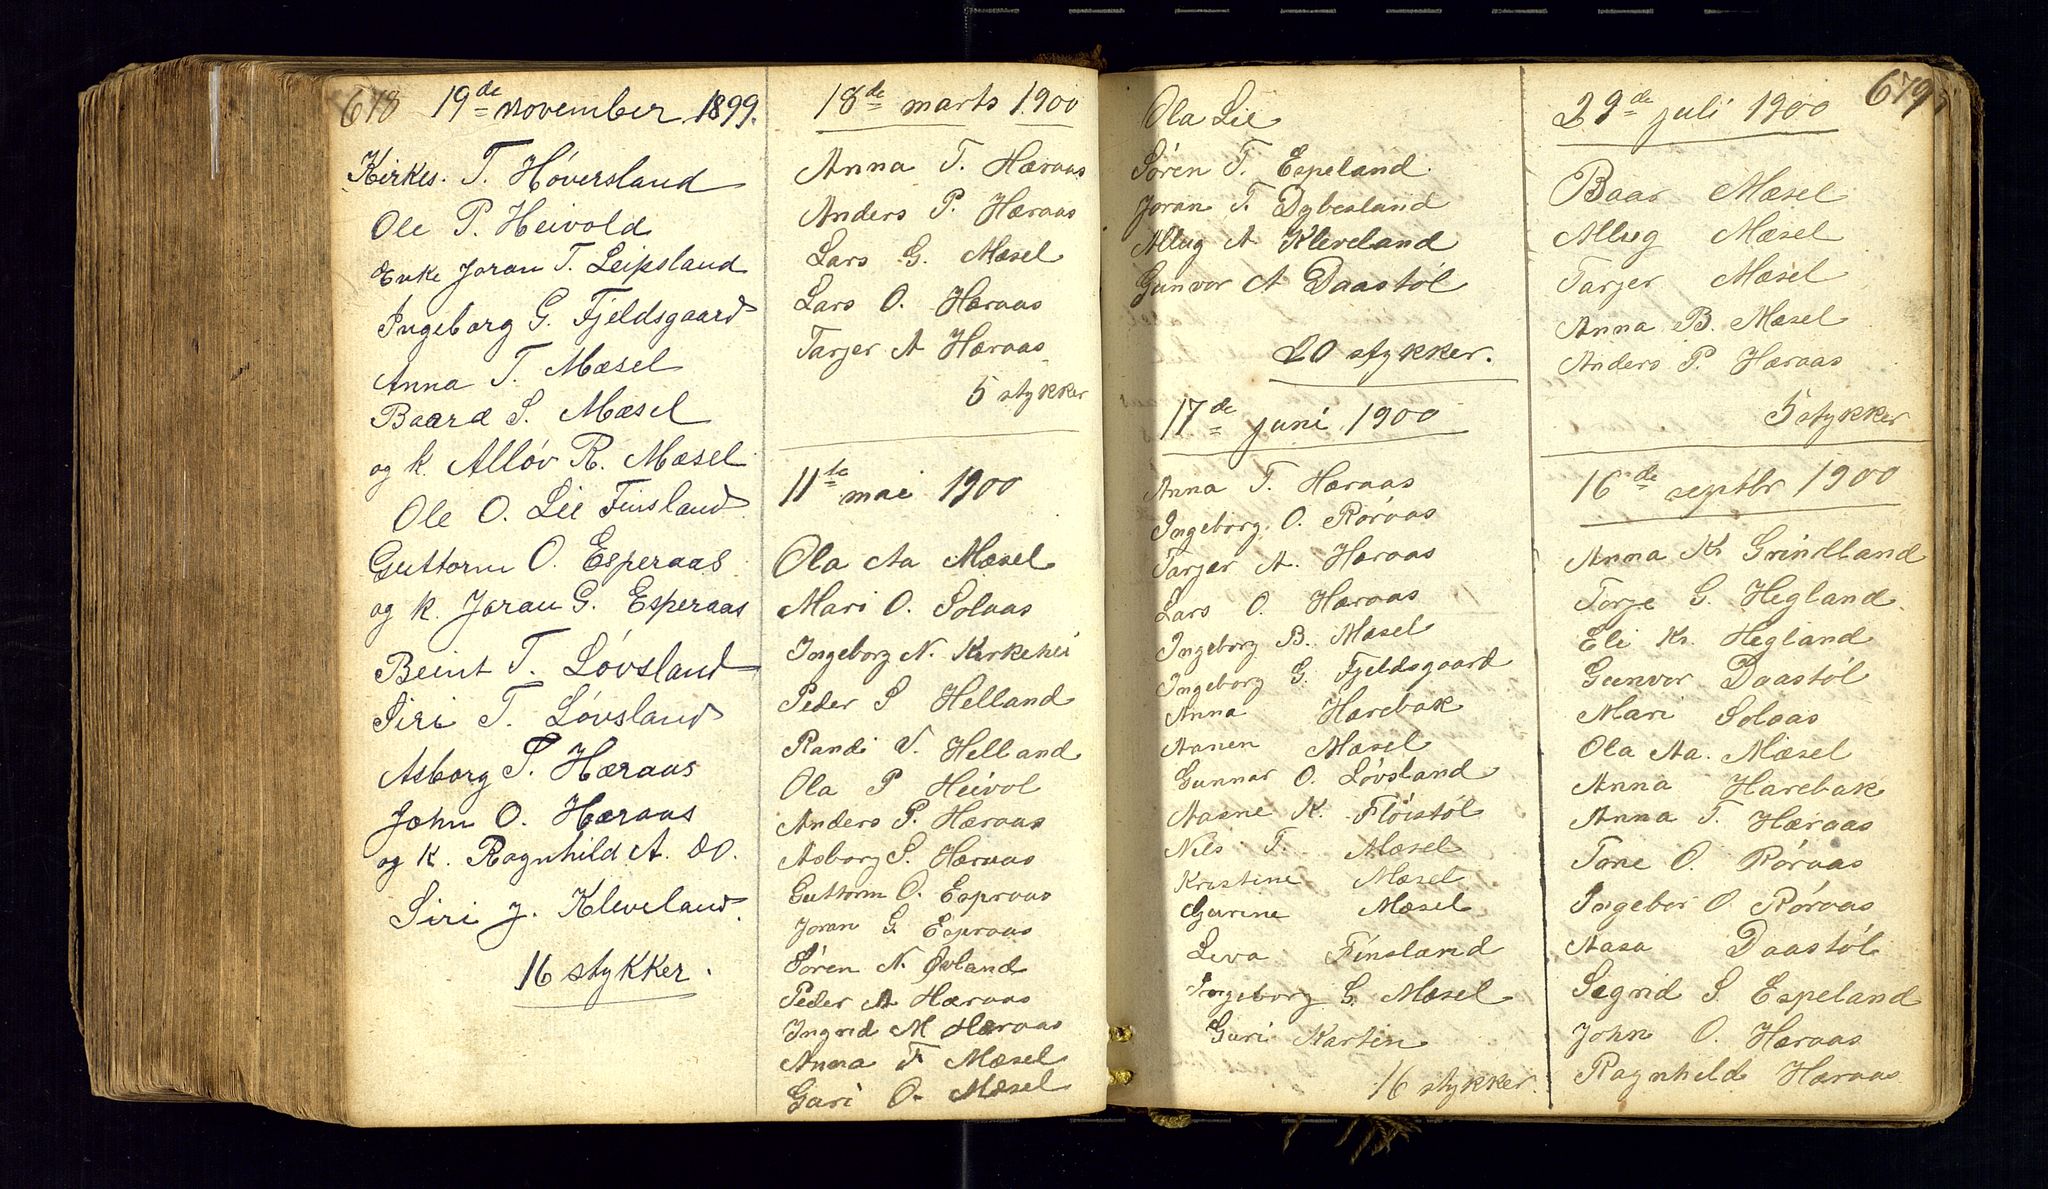 678
19de november 1899.
Kirkes. T. Höversland
Ole P. Heivold
Enke Joran T. Leipsland
Ingeborg G. Fjeldsgaard
Anna T. Mæsel
Baard S. Mæsel
og k. Allöv R. Mæsel
Ole O. Lie Finsland
Guttorm O. Esperaas
og k. Joran G. Esperaas
Beint T. Lövsland
Siri T. Lövsland
Asborg S. Hæraas
John O. Hæraas
og k. Ragnhild A. do.
Siri J. Kleveland.
16 stykker.
18de marts 1900
Anna T. Hæraas
Anders P. Hæraas
Lars G. Mæsel
Lars O. Hæraas
Tarjer A Hæraas
5 stykker
11te mai 1900
Ola Aa Mæsel
Mari O. Solaas
Ingeborg N. Kirkehei
Peder S Helland
Randi T. Helland
Ola P Heivol
Anders P. Hæraas
Asborg S. Hæraas
Guttorm O. Espraas
Joran G. Espraas
Sören N. Øvland
Peder A Hæraas
Ingrid M Hæraas
Anna T Mæsel
Guri O. Mæsel
Ola Lie
Sören T. Espeland.
Joran T. Dybesland
Allug A Kleveland
Gunvor A Daastöl
20 stykker.
17de juni 1900
Anna T. Hæraas
Ingeborg O. Röraas
Tarjer A. Hæraas
Lars O. Hæraas
Ingeborg B. Mæsel
Ingeborg G. Fjeldsgaard
Anna Harebak
Aanen Mæsel
Gunnar O. Lövsland
Aasne K. Flöistöl
Nils T. Mæsel
Kristine Mæsel
Gurine Mæsel
Leva Finsland
Ingeborg G. Mæsel
Guri Kartin
16 stykker.
679
29de juli 1900
Baar Mæsel
Allug Mæsel
Tarjer Mæsel
Anna B. Mæsel
Anders P. Hæraas
5 stykker
16de septbr 1900
Anna Kr Grindland
Torje G. Hegland.
Eli Kr. Hegland
Gunvor Daastöl
Mari Solaas
Ola Aa. Mæsel
Anna Harebak
Anna T. Hæraas
Tone O. Röraas
Ingebor O. Röraas
Aasa Daastöl
Segrid S. Espeland
John O. Hæraas
Ragnhild Hæraas